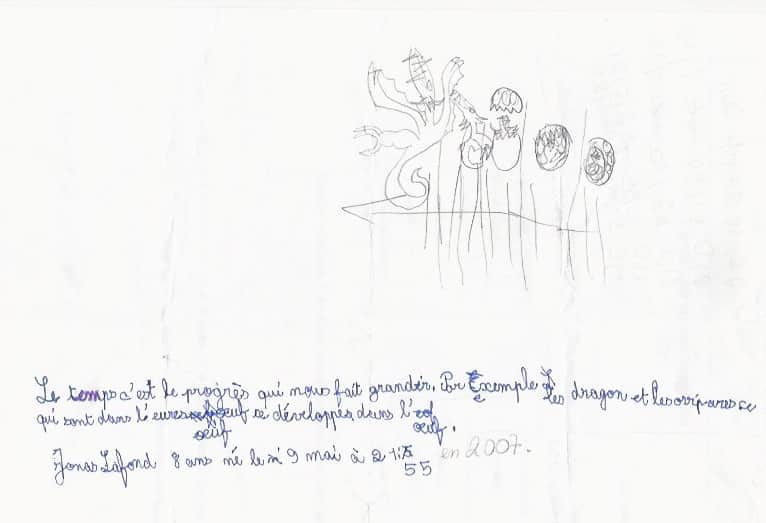 Le temps c'est le progrès qui nous fait grandir. Par Exemple les dragon et les ovipares
qui sont dans l'œuf se développés dans l'œuf.
Jonas Lafond 8 ans né le 9 mai à 21: 55 en 2007.